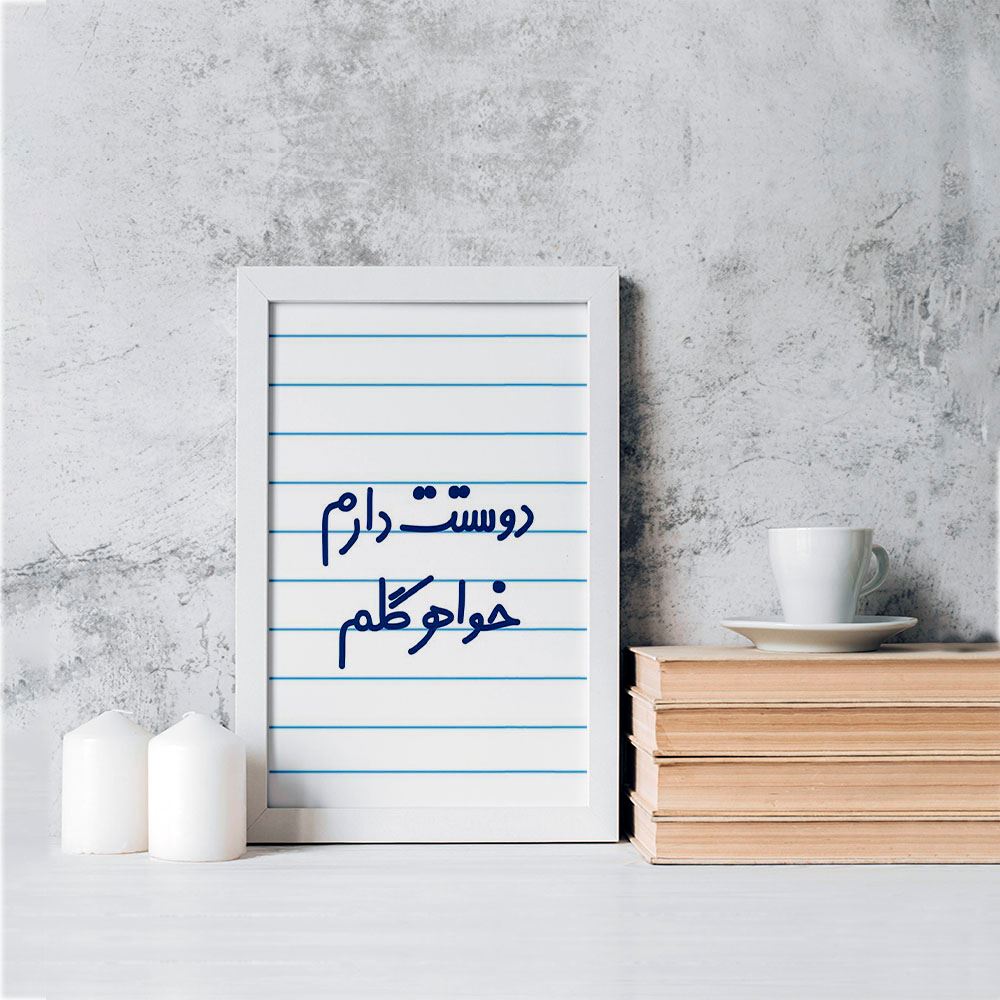 دوستت دارم
خواهر گلم